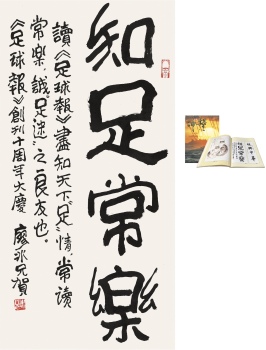 知足常樂
讀《足球報》盡知天下「足」情，常讀
常樂，誠「足迷」之良友也。
《足球報》創刊十周年大慶 廖冰兄賀